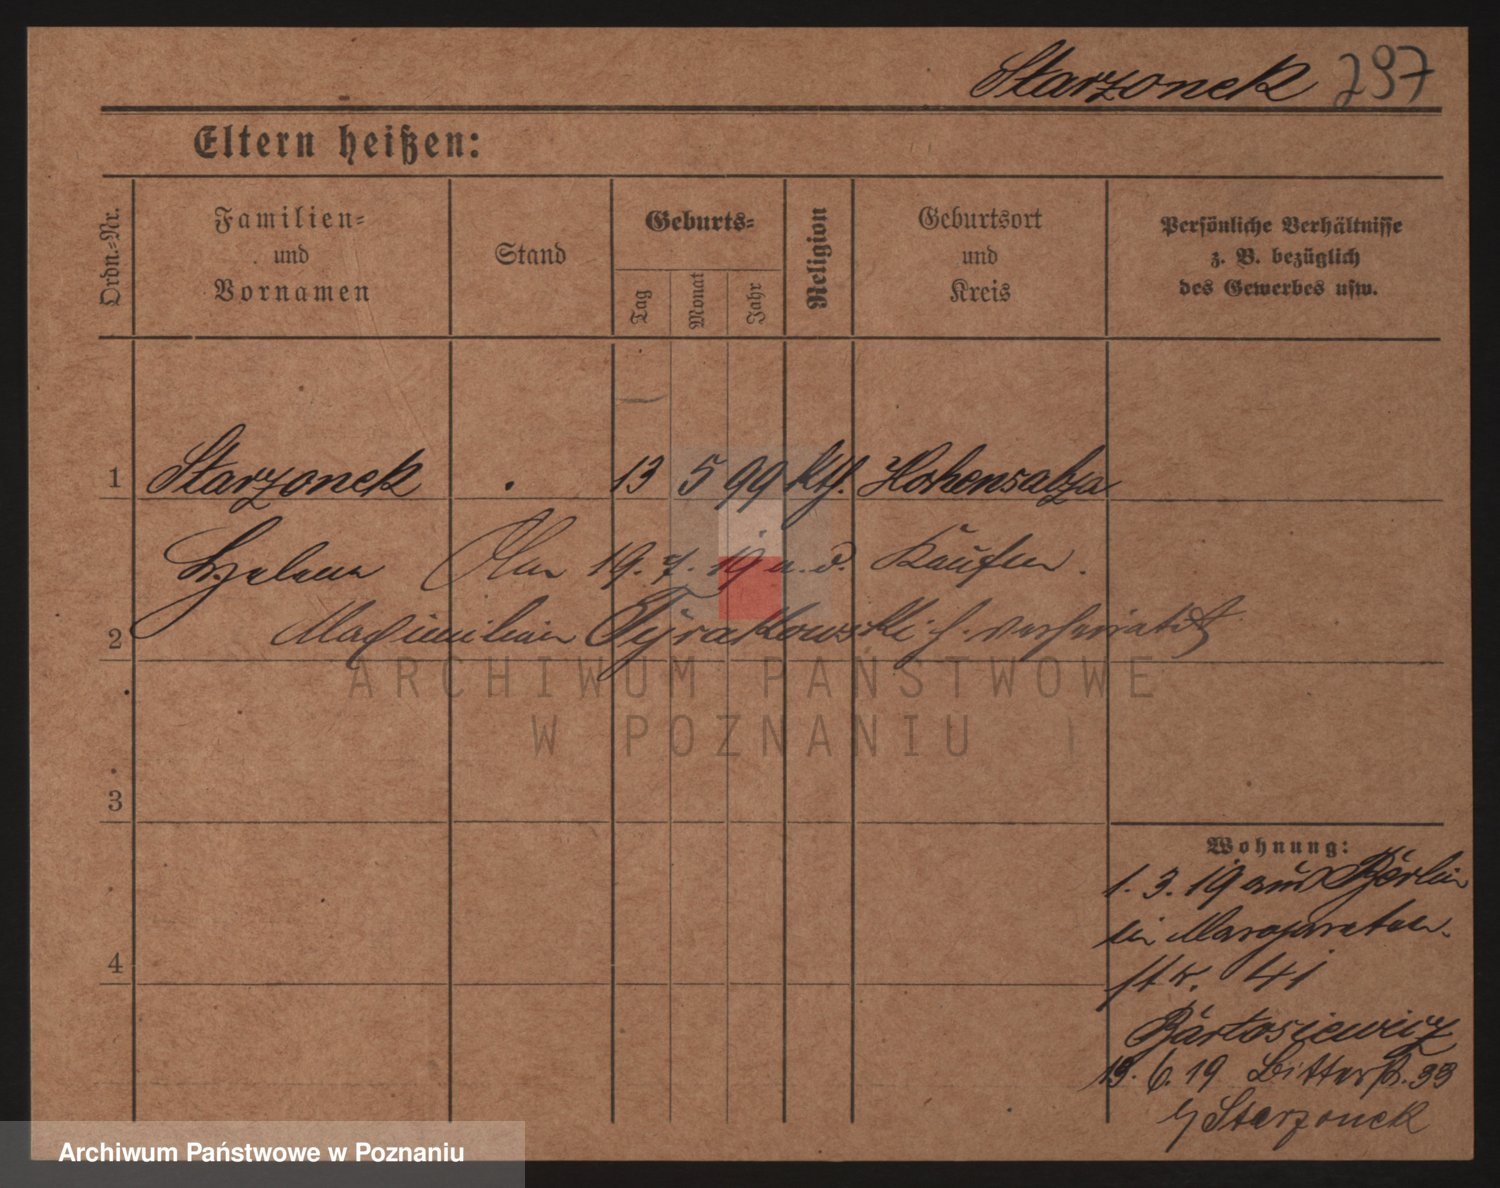 Starzonek 297
Eltern heißen:
Ordn.=Nr.
Familien=
und
Vornamen
Stand
Geburts=
Tag
Monat
Jahr
Religion
Geburtsort
und
Kreis
Persönliche Verhältnisse
z. B. bezüglich
des Gewerbes usw.
1 Starzonek 13 5 99 Kth. Hohensalza
Helene Am 19. 7. 19 a. d.
2 Maximilian Tyrakowski verheiratet
ARCHIWUM PAŃSTWOWE
W POZNANIU
3
Wohnung:
1. 3. 19 aus Berlin
Margareten
str. 41
4
Bartosiewicz
19. 6. 19 Bitterstr. 33
b/ Starzonek
Archiwum Państwowe w Poznaniu